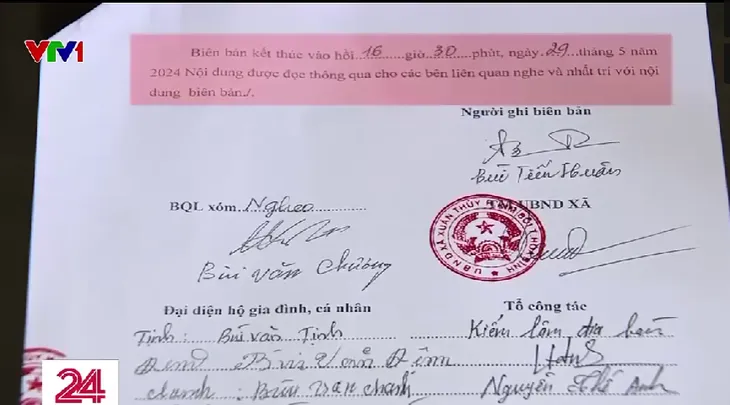 VTV1
Biên bản kết thúc vào hồi 16 giờ 30 phút, ngày 29 tháng 5 năm
2024 Nội dung được đọc thông qua cho các bên liên quan nghe và nhất trí với nội
dung biên bản./.
Người ghi biên bản
Bùi Tiến Huân
BQL xóm Nghẹo
UBND XÃ
Bùi Văn Chương
Đại diện hộ gia đình, cá nhân
Tổ công tác
Tịnh: Bùi Văn Tịnh
Kiểm lâm địa bàn
Bùi Văn
Chanh: Bùi Văn Chanh
Nguyễn Thế Anh
24